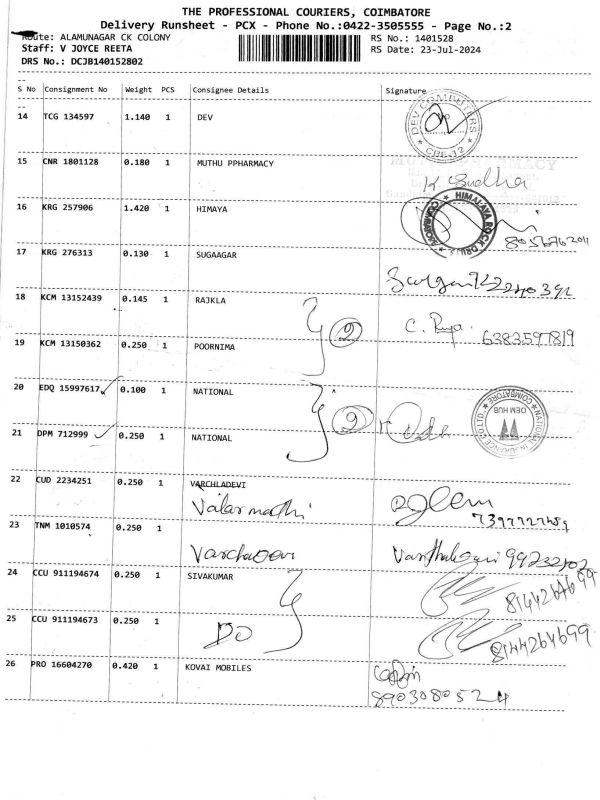 THE PROFESSIONAL COURIERS, COIMBATORE
Delivery Runsheet - PCX - Phone No.:0422-3505555 - Page No.:2
Route: ALAMUNAGAR CK COLONY RS No.: 1401528
Staff: V JOYCE REETA RS Date: 23-Jul-2024
DRS No.: DCJB140152802
S No Consignment No Weight PCS Consignee Details Signature
14 TCG 134597 1.140 1 DEV
DEV COMPUTERS CBE-12
15 CNR 1801128 0.180 1 MUTHU PPHARMACY
K Sudha
16 KRG 257906 1.420 1 HIMAYA
HIMALAYA ROCK DRUGS
17 KRG 276313 0.130 1 SUGAAGAR
18 KCM 13152439 0.145 1 RAJKLA
2 C. Priya 6383597819
19 KCM 13150362 0.250 1 POORNIMA
20 EDQ 15997617 0.100 1 NATIONAL
NATIONAL INSURANCE CO LTD. COIMBATORE OEM HUB
2
21 DPM 712999 0.250 1 NATIONAL
22 CUD 2234251 0.250 1 VARCHLADEVI
Valarmathi
23 TNM 1010574 0.250 1
24 CCU 911194674 0.250 1 SIVAKUMAR
25 CCU 911194673 0.250 1
Do 8144264699
26 PRO 16604270 0.420 1 KOVAI MOBILES
8903080524